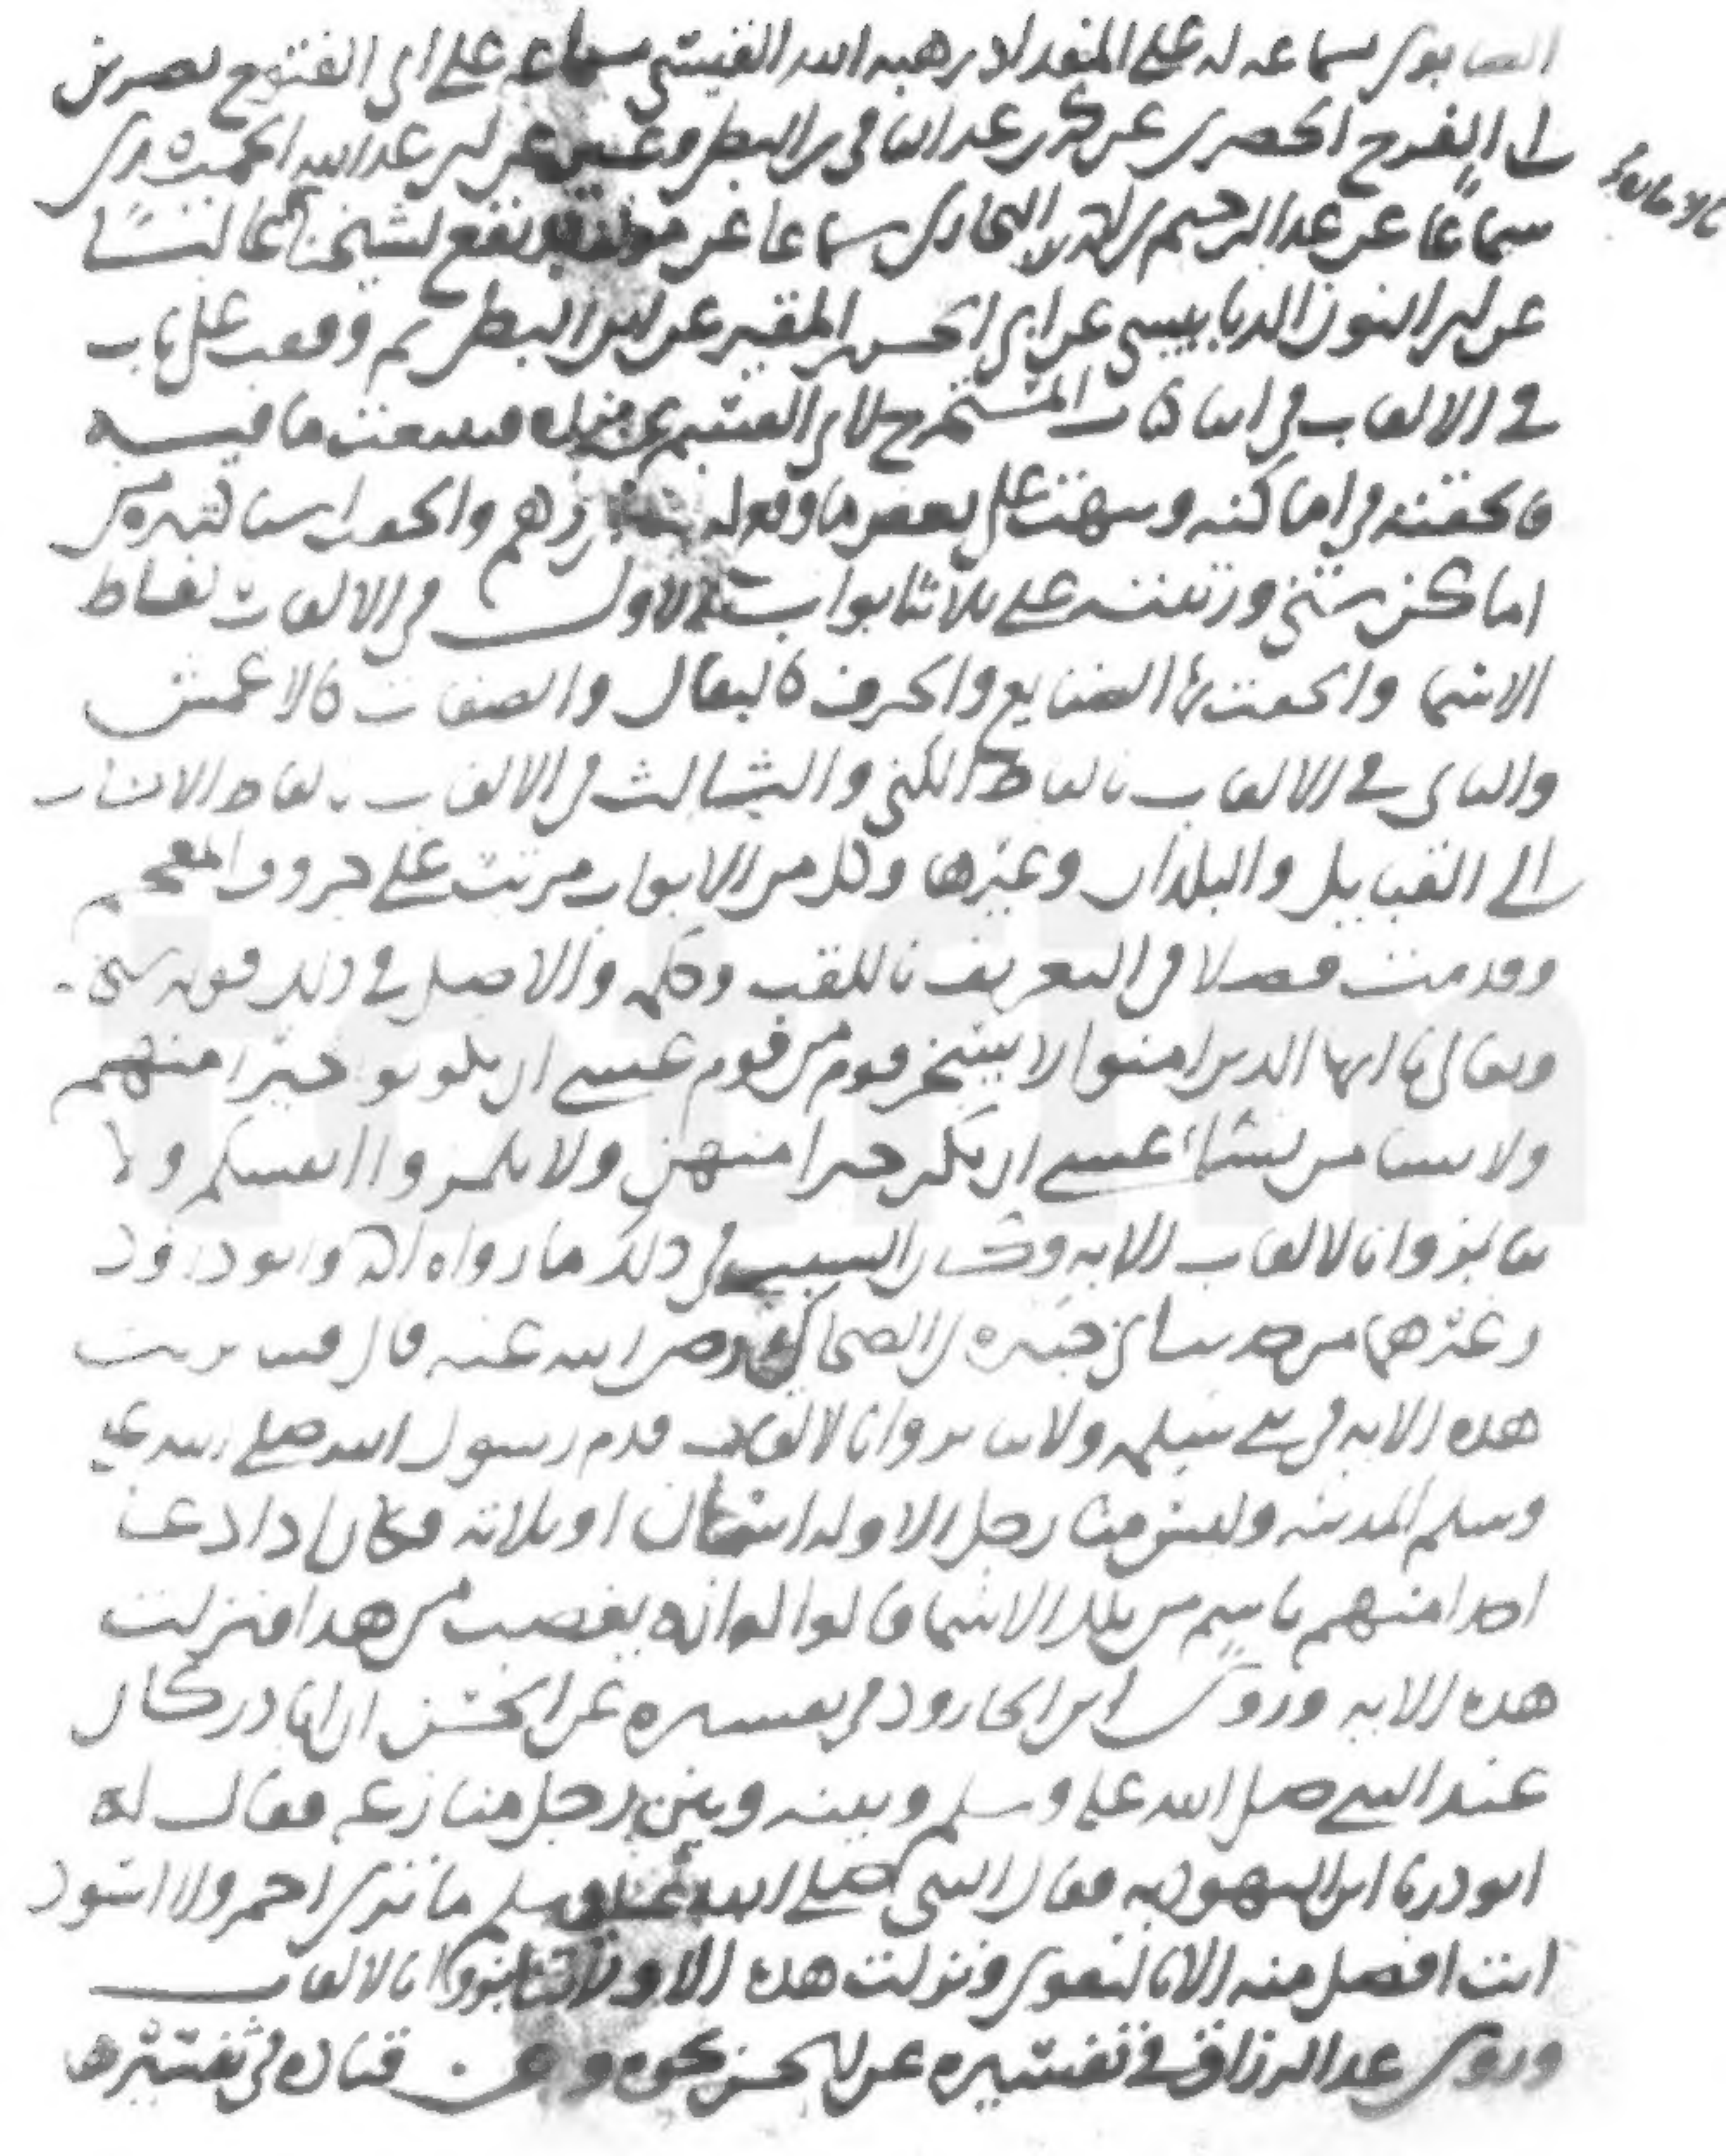 الصابوني بسماعه له على هبه الله سماعه على ابي الفتوح نصر بن
ابي الفرج الحصري عن محمد بن عبد الباقي بن البطي وغيره عن ابي عبد الله الحميدي
سماعا عن عبد الرحيم بن احمد البخاري سماعا عن مولفه ووقع لشيخنا عاليا
عن ابي النون الدبابيسي عن ابي الحسن المقير عن ابن البطي ثم وقفت على باب
في الالقاب في اخر كتاب المستخرج لابي القسم بن منده فتتبعت ما فيه
فالحقته في اماكنه ونبهت على بعض ما وقع له من وهم والحقت اشيا كثيره من
اماكن شتى ورتبته على ثلاثة ابواب الاول في الالقاب بالفاظ
الاسما والحقت بها الصنايع والحرف كالبقال والصفات كالاعمش
والثاني في الالقاب بالفاظ الكنى والثالث في الالقاب بالفاظ الانساب
الى القبايل والبلدان وغيرها وكل من الابواب مرتب على حروف المعجم
وقدمت فصلا في التعريف باللقب وحكمه والاصل في ذلك قوله سبحانه
وتعالى يا ايها الذين امنوا لا يسخر قوم من قوم عسى ان يكونوا خيرا منهم
ولا نسا من نساء عسى ان يكن خيرا منهن ولا تلمزوا انفسكم ولا
تنابزوا بالالقاب الايه وكان السبب في ذلك ما رواه احمد وابو داود
وغيرهما من حديث ابي جبيره بن الضحاك رضي الله عنه قال فينا نزلت
هذه الايه في بني سلمه ولا تنابزوا بالالقاب قدم رسول الله صلى الله عليه
وسلم المدينه وليس منا رجل الا وله اسمان او ثلاثه فكان اذا دعا
احدا منهم باسم من تلك الاسما قالوا انه يغضب من هذا فنزلت
هذه الايه وروى ابن الجارود في تفسيره عن الحسن ان ابا ذر كان
عند النبي صلى الله عليه وسلم وبينه وبين رجل منازعه فقال له
ابو ذر يا ابن اليهوديه فقال النبي صلى الله عليه وسلم ما ترى احمر ولا اسود
انت افضل منه الا بالتقوى ونزلت هذه الايه ولا تنابزوا بالالقاب
وروى عبد الرزاق في تفسيره عن الحسن نحوه وعن قتاده في تفسيرها